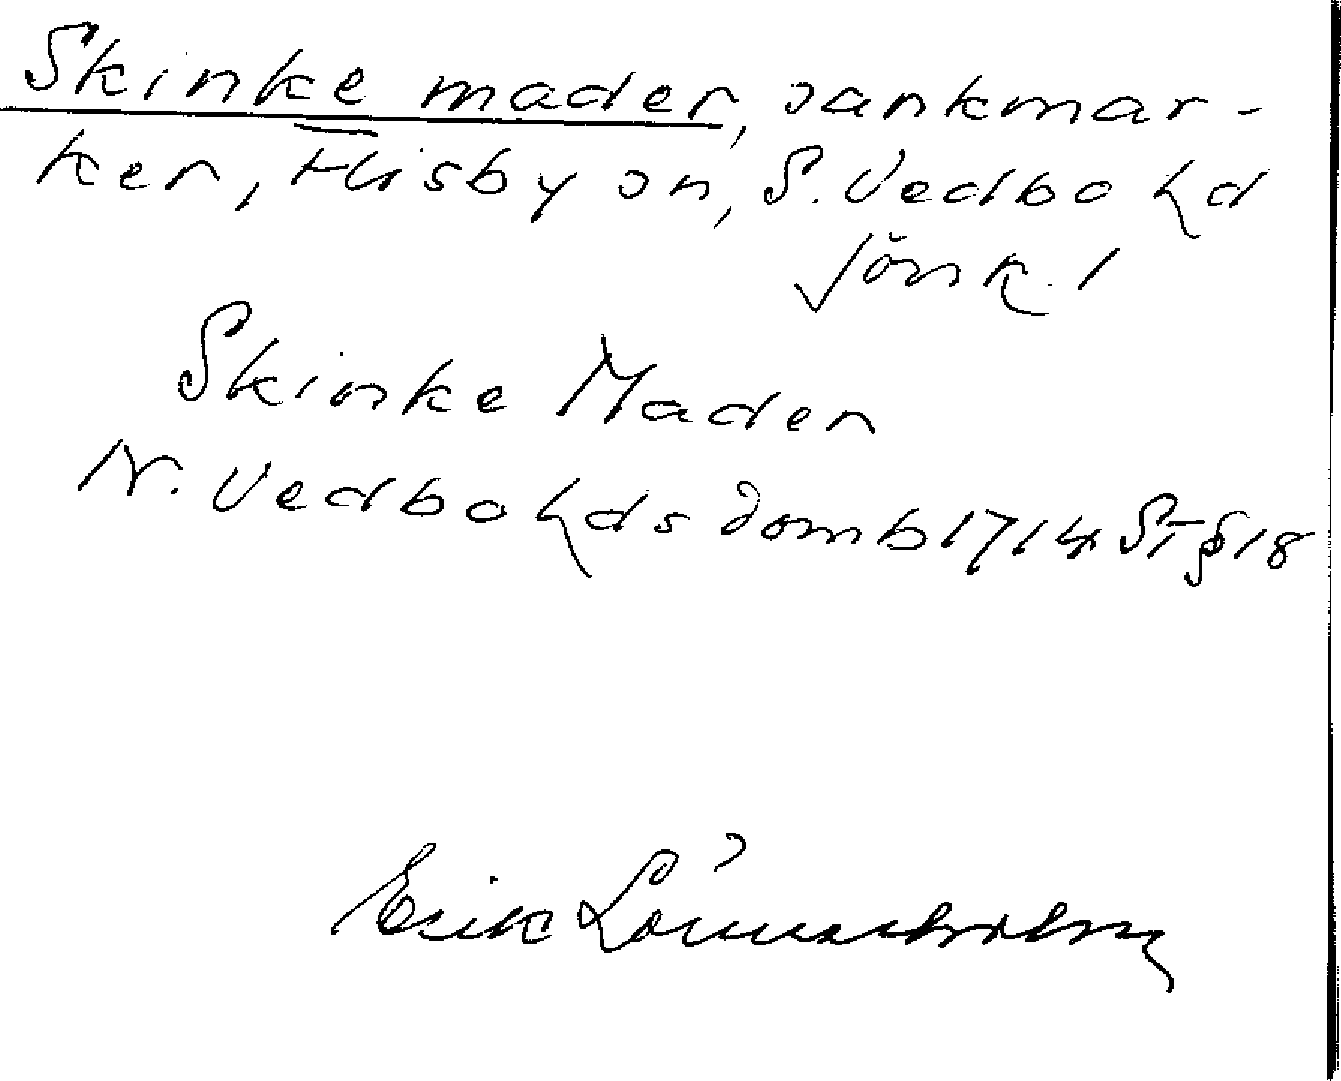 Skinke mader, sankmar-
ker, Flisby sn, S. Vedbo hd
Jönk. l
Skinke Maden
N. Vedbo hds domb 1714 St § 18
Erik Lönnerholm